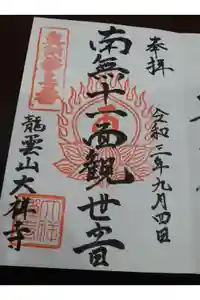 奉拝
令和三年九月四日
南無十一面観世音
龍雲山大祥寺